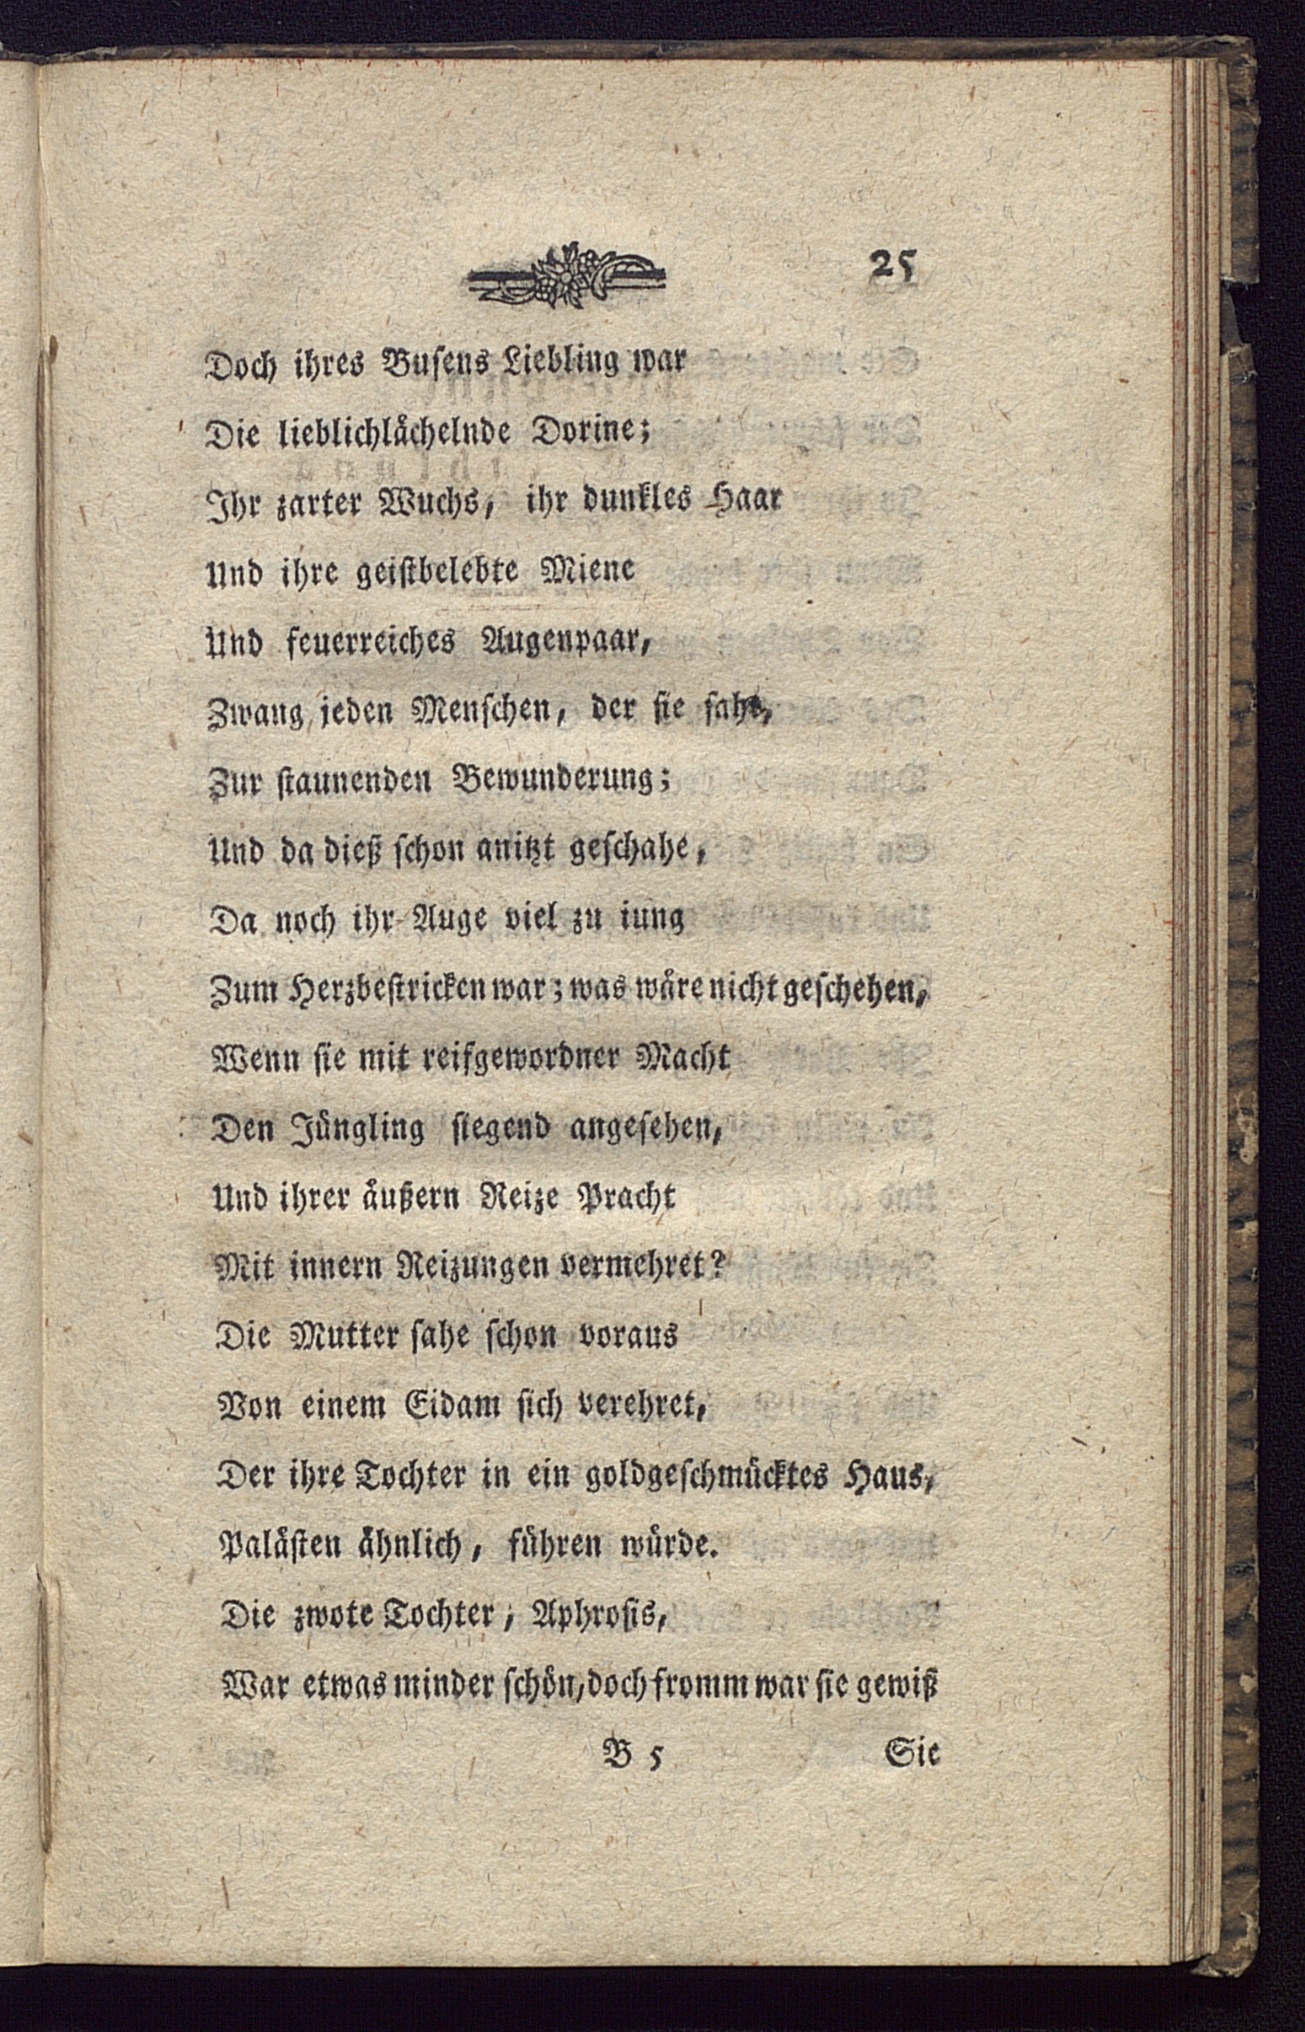 25
Doch ihres Busens Liebling war
Die lieblichlächelnde Dorine;
Ihr zarter Wuchs, ihr dunkles Haar
Und ihre geistbelebte Miene
Und feuerreiches Augenpaar,
Zwang jeden Menschen, der sie sahe,
Zur staunenden Bewunderung;
Und da dieß schon anitzt geschahe,
Da noch ihr Auge viel zu iung
Zum Herzbestricken war; was wäre nicht geschehen,
Wenn sie mit reifgewordner Macht
Den Jüngling siegend angesehen,
Und ihrer äußern Reize Pracht
Mit innern Reizungen vermehret?
Die Mutter sahe schon voraus
Von einem Eidam sich verehret,
Der ihre Tochter in ein goldgeschmücktes Haus,
Palästen ähnlich, führen würde.
Die zwote Tochter, Aphrosis,
War etwas minder schön, doch fromm war sie gewiß
B 5 Sie